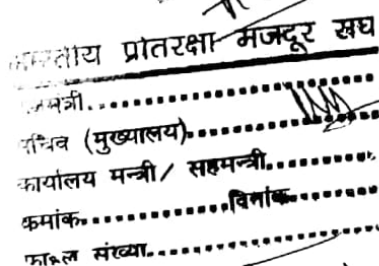 भारतीय प्रतिरक्षा मजदूर संघ
महामंत्री..................
सचिव (मुख्यालय)..................
कार्यालय मन्त्री / सहमन्त्री..............
क्रमांक..............दिनांक..............
फाइल संख्या..................